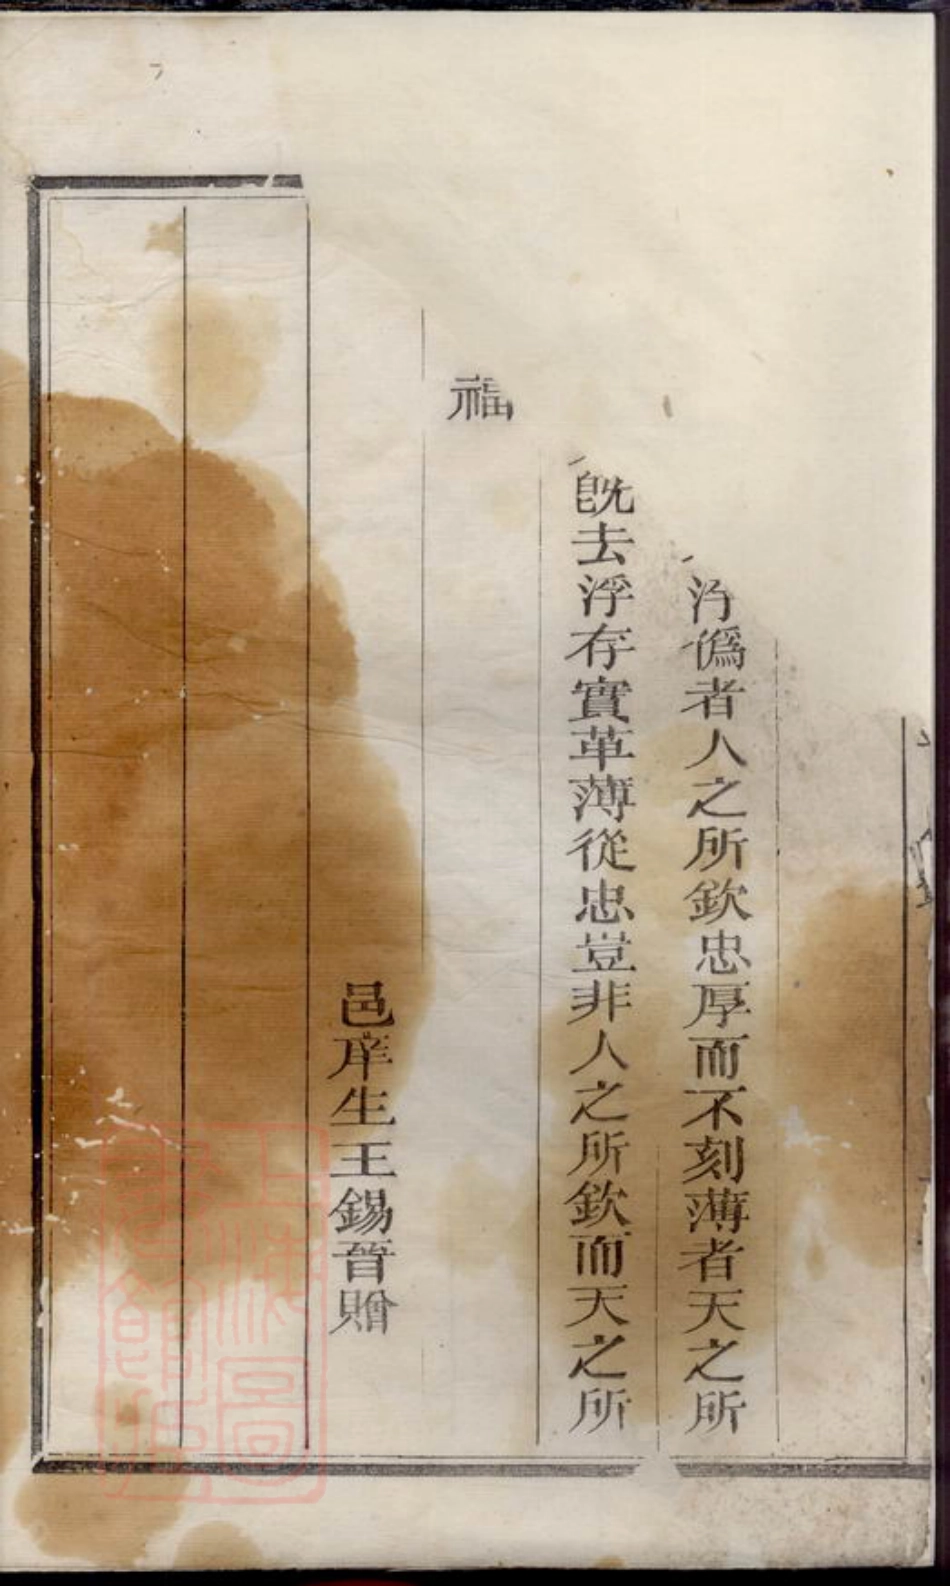 僞者人之所欽忠厚而不刻薄者天之所
既去浮存實革薄從忠豈非人之所欽而天之所
福
邑庠生王錫晉贈
上海圖書館藏